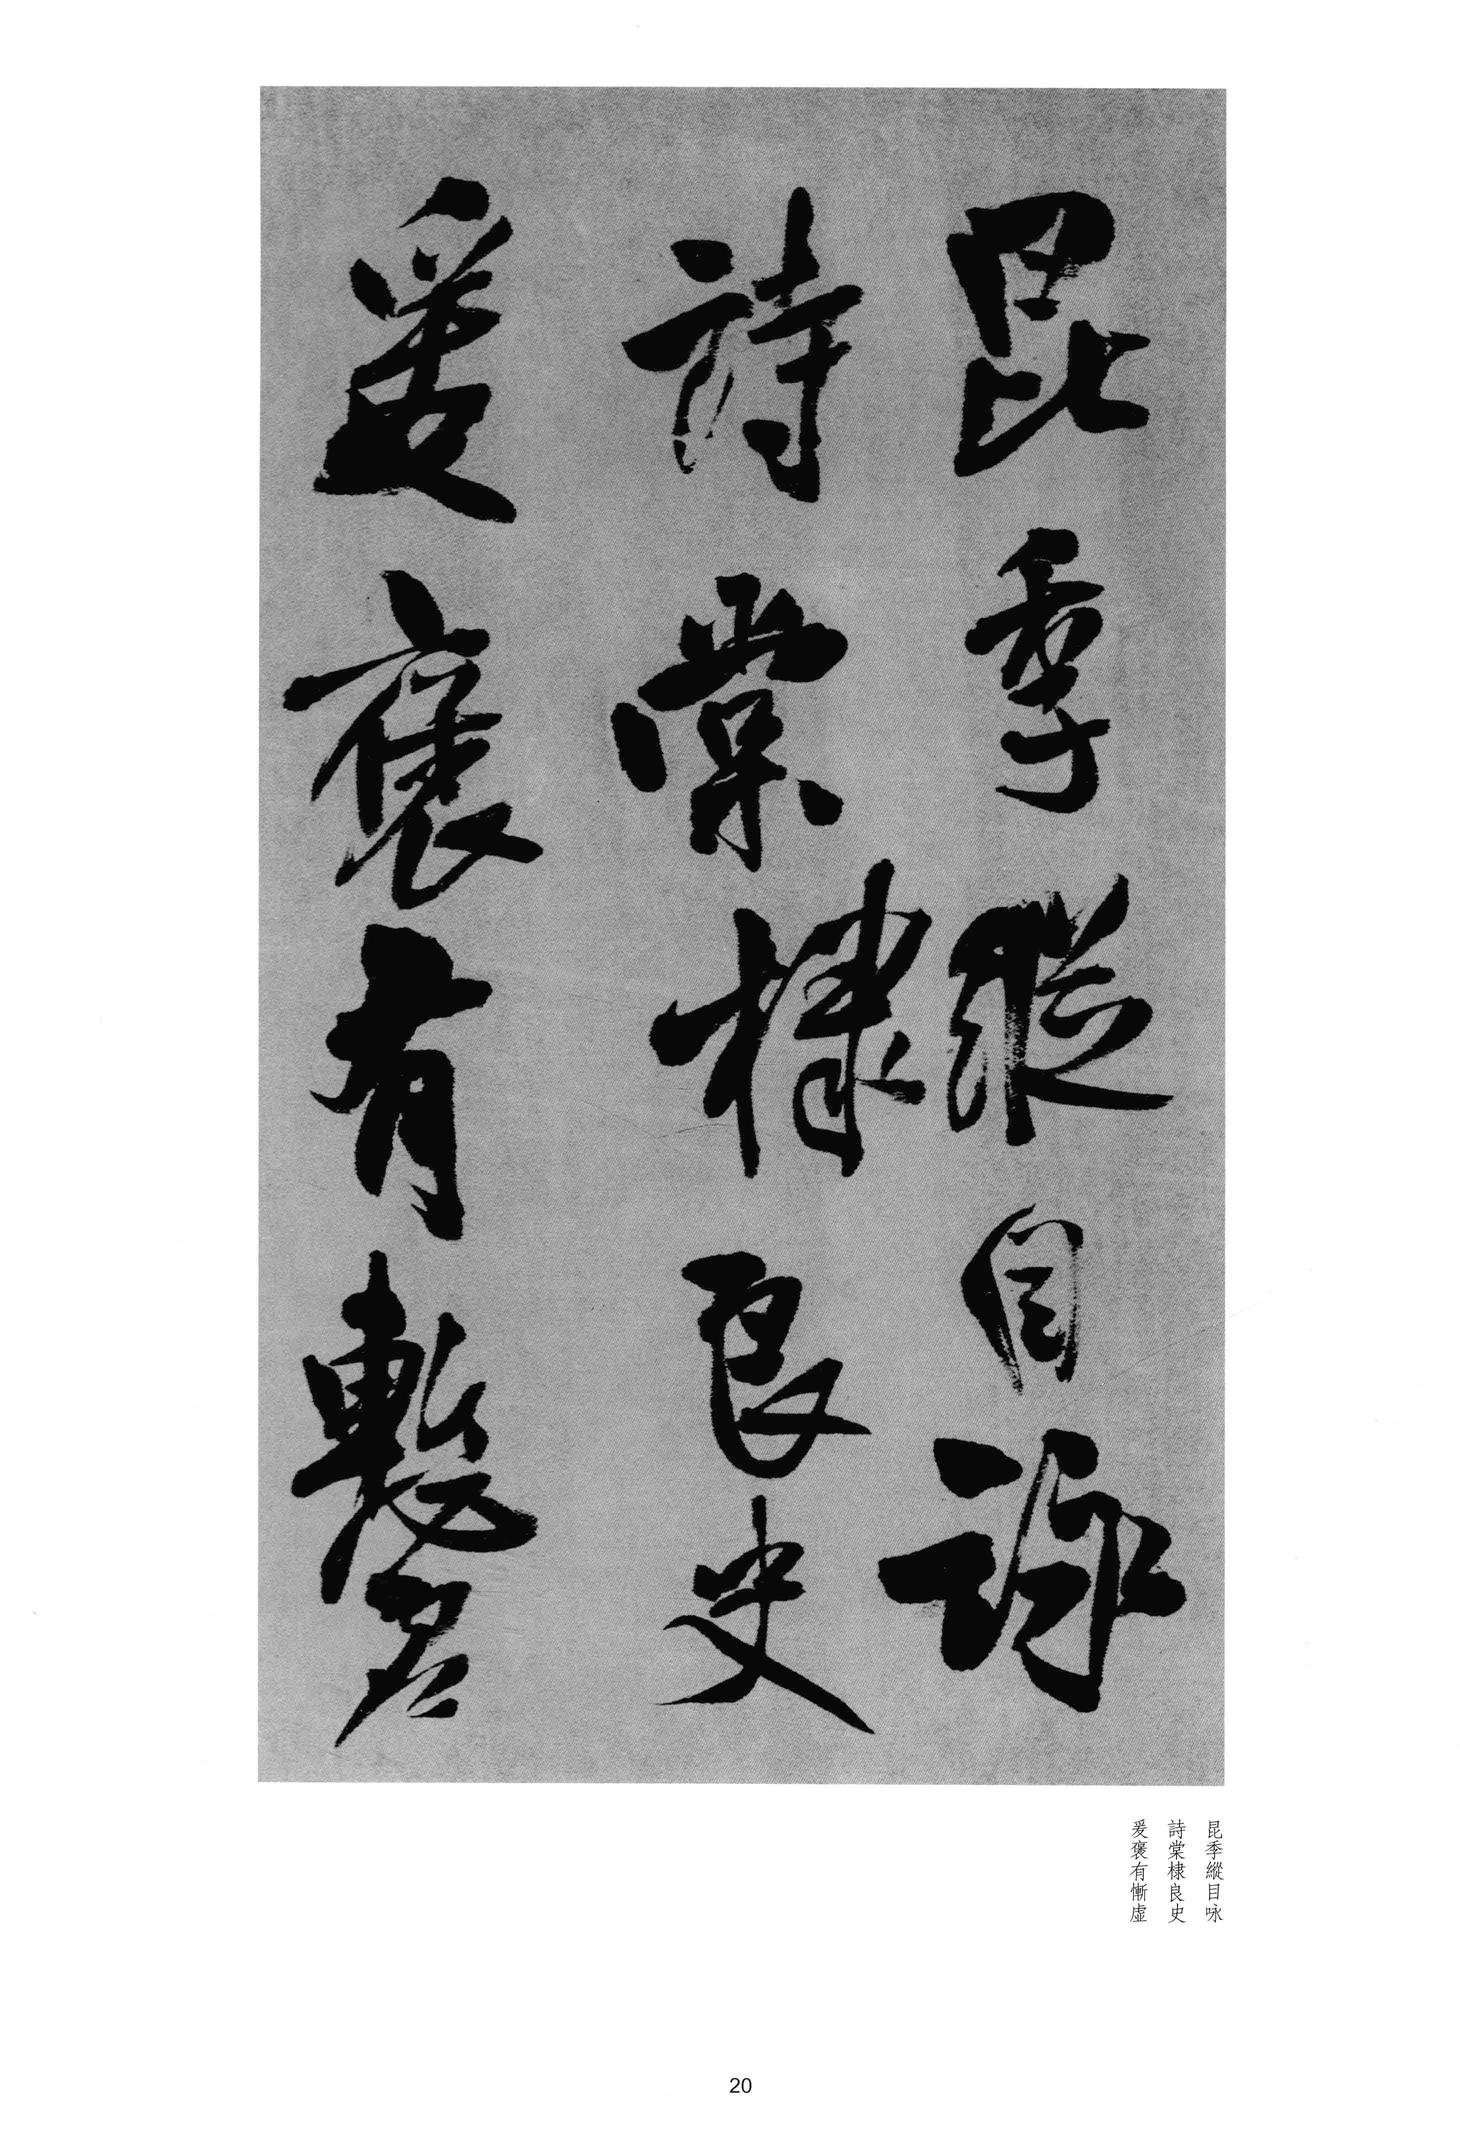 昆季縱目詠
詩棠棣良史
爰褒有慙虛
昆季縱目咏
詩棠棣良史
爰褒有慚虛
20